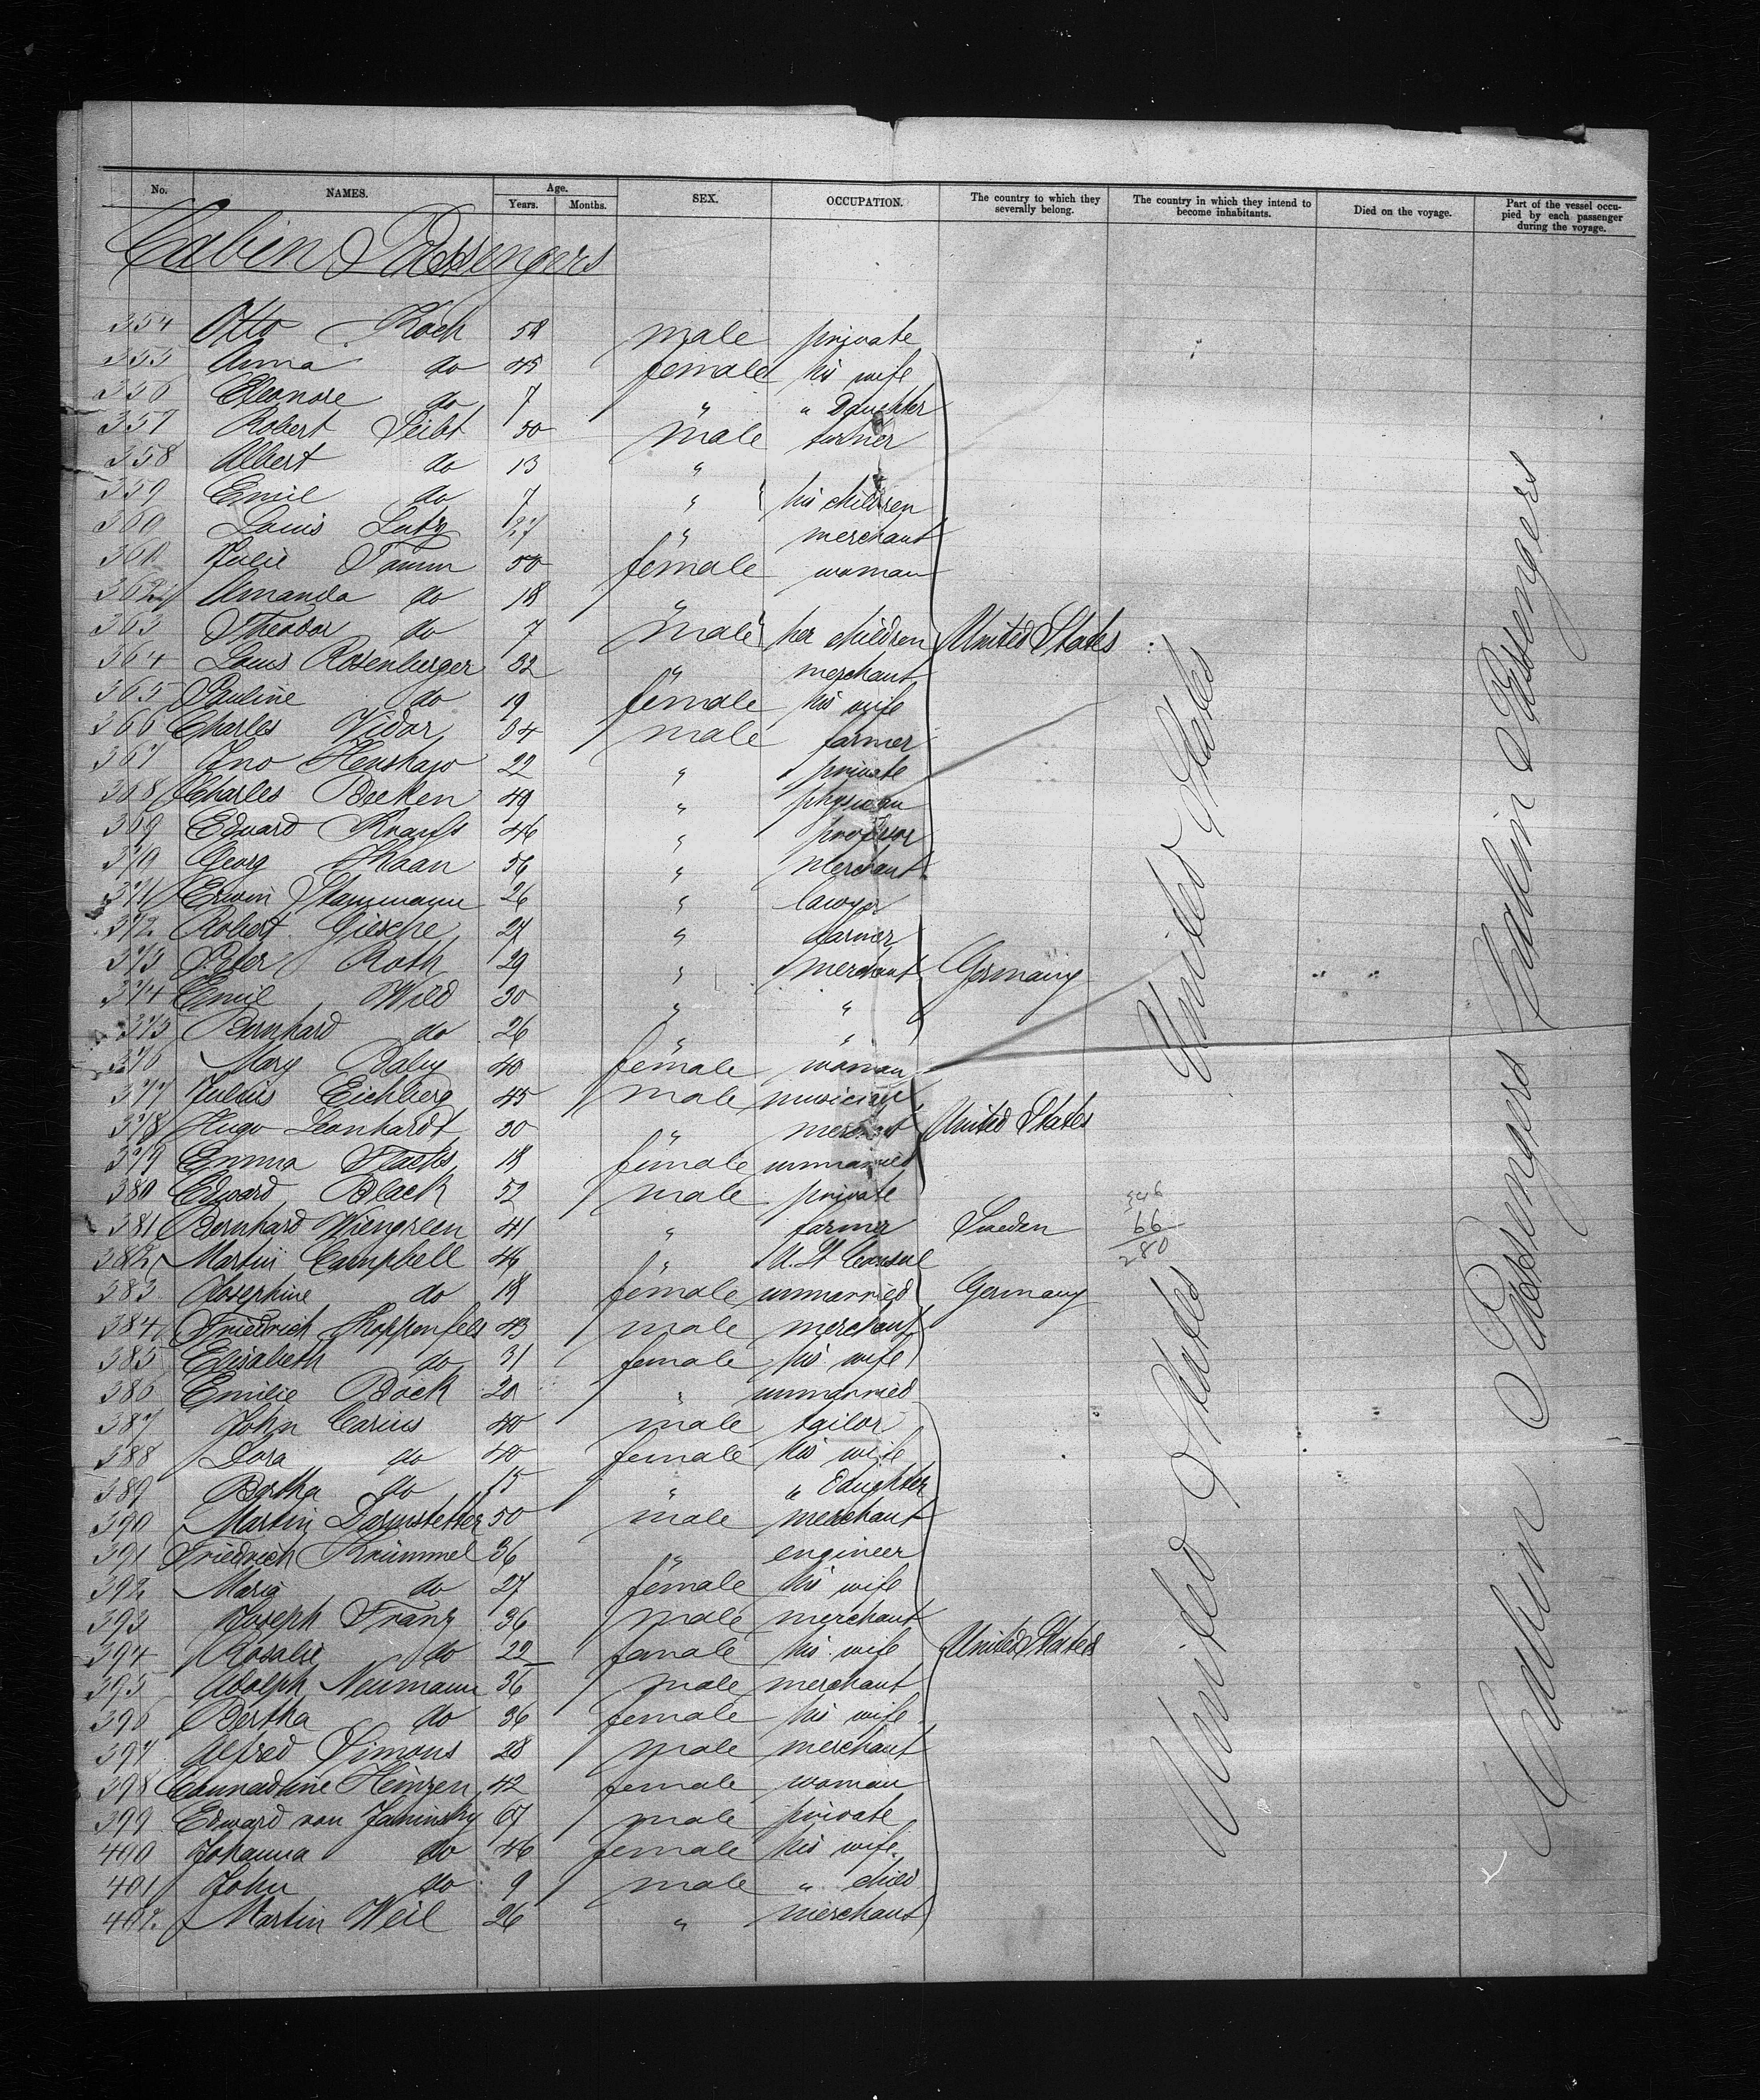 No. NAMES. Age. Years. Months. SEX. OCCUPATION. The country to which they severally belong. The country in which they intend to become inhabitants. Died on the voyage. Part of the vessel occupied by each passenger during the voyage.
Cabin Passengers
354 Otto Koch 58 male private
355 Anna do 45 female his wife
356 Eleonore do 7 " " Daughter
357 Robert Seibt 50 male turner
358 Albert do 13 "
359 Emil do 7 " his children
360 Louis Lutz 27 " merchant
361 Julie Tamm 50 female woman
362 Amanda do 18 "
363 Theodor do 7 male her children United States
364 Louis Rosenberger 32 " merchant
365 Pauline do 19 female his wife
366 Charles Vidor 34 male farmer
367 Jno Henshaw 22 " private
368 Charles Becken 49 " physician
369 Eduard Krauss 46 " professor
370 Georg Haan 56 " merchant
371 Erwin Stammann 26 " lawyer
372 Robert Giesche 27 " farmer
373 Peter Roth 29 " merchant Germany
374 Emil Wild 30 " "
375 Bernhard do 26 " "
376 Mary Daly 40 female woman
377 Julius Eichberg 45 male musician
378 Hugo Leonhardt 30 " merchant United States
379 Emma Stacks 18 female unmarried
380 Edward Black 52 male private
381 Bernhard Wiengreen 41 " farmer Sweden
382 Martin Campbell 46 " U. St Consul
383 Josephine do 19 female unmarried Germany
384 Friedrich Hoppenfels 43 male merchant
385 Elisabeth do 31 female his wife
386 Emilie Bock 20 " unmarried
387 John Carius 40 male tailor
388 Dora do 40 female his wife
389 Bertha do 15 " " Daughter
390 Martin Darmstetter 50 male merchant
391 Friedrich Krümmel 36 " engineer
392 Maria do 27 female his wife
393 Joseph Franz 36 male merchant
394 Rosalie do 22 female his wife United States
395 Adolph Neumann 36 male merchant
396 Bertha do 36 female his wife
397 Alfred Simons 28 male merchant
398 Connadine Heinzen 42 female woman
399 Edward von Janinsky 67 male private
400 Johanna do 46 female his wife
401 John do 9 male " child
402. Martin Weil 26 " merchant
United States
United States
346
66
280
Cabin Passengers
Cabin Passengers